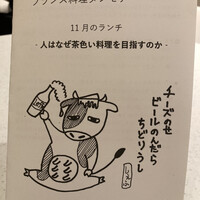 フランス料理
11月のランチ
- 人はなぜ茶色い料理を目指すのか -
チーズのせ
ビールのんだら
ちどりうし